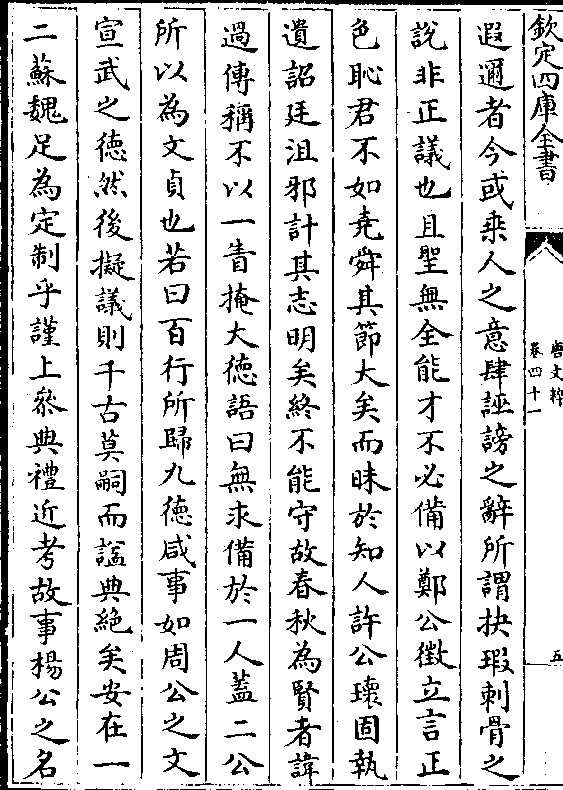 欽定四庫全書
唐文粹
卷四十一
五
遐邇者今或乗人之意肆誣謗之辭所謂抉瑕刺骨之
說非正議也且聖無全能才不必備以鄭公徴立言正
色恥君不如堯舜其節大矣而昧於知人許公瓌固執
遺詔廷沮邪計其志明矣終不能守故春秋為賢者諱
過傳稱不以一眚掩大徳語曰無求備於一人蓋二公
所以為文貞也若曰百行所歸九徳咸事如周公之文
宣武之徳然後擬議則千古莫嗣而諡典絶矣安在一
二蘇魏足為定制乎謹上叅典禮近考故事楊公之名